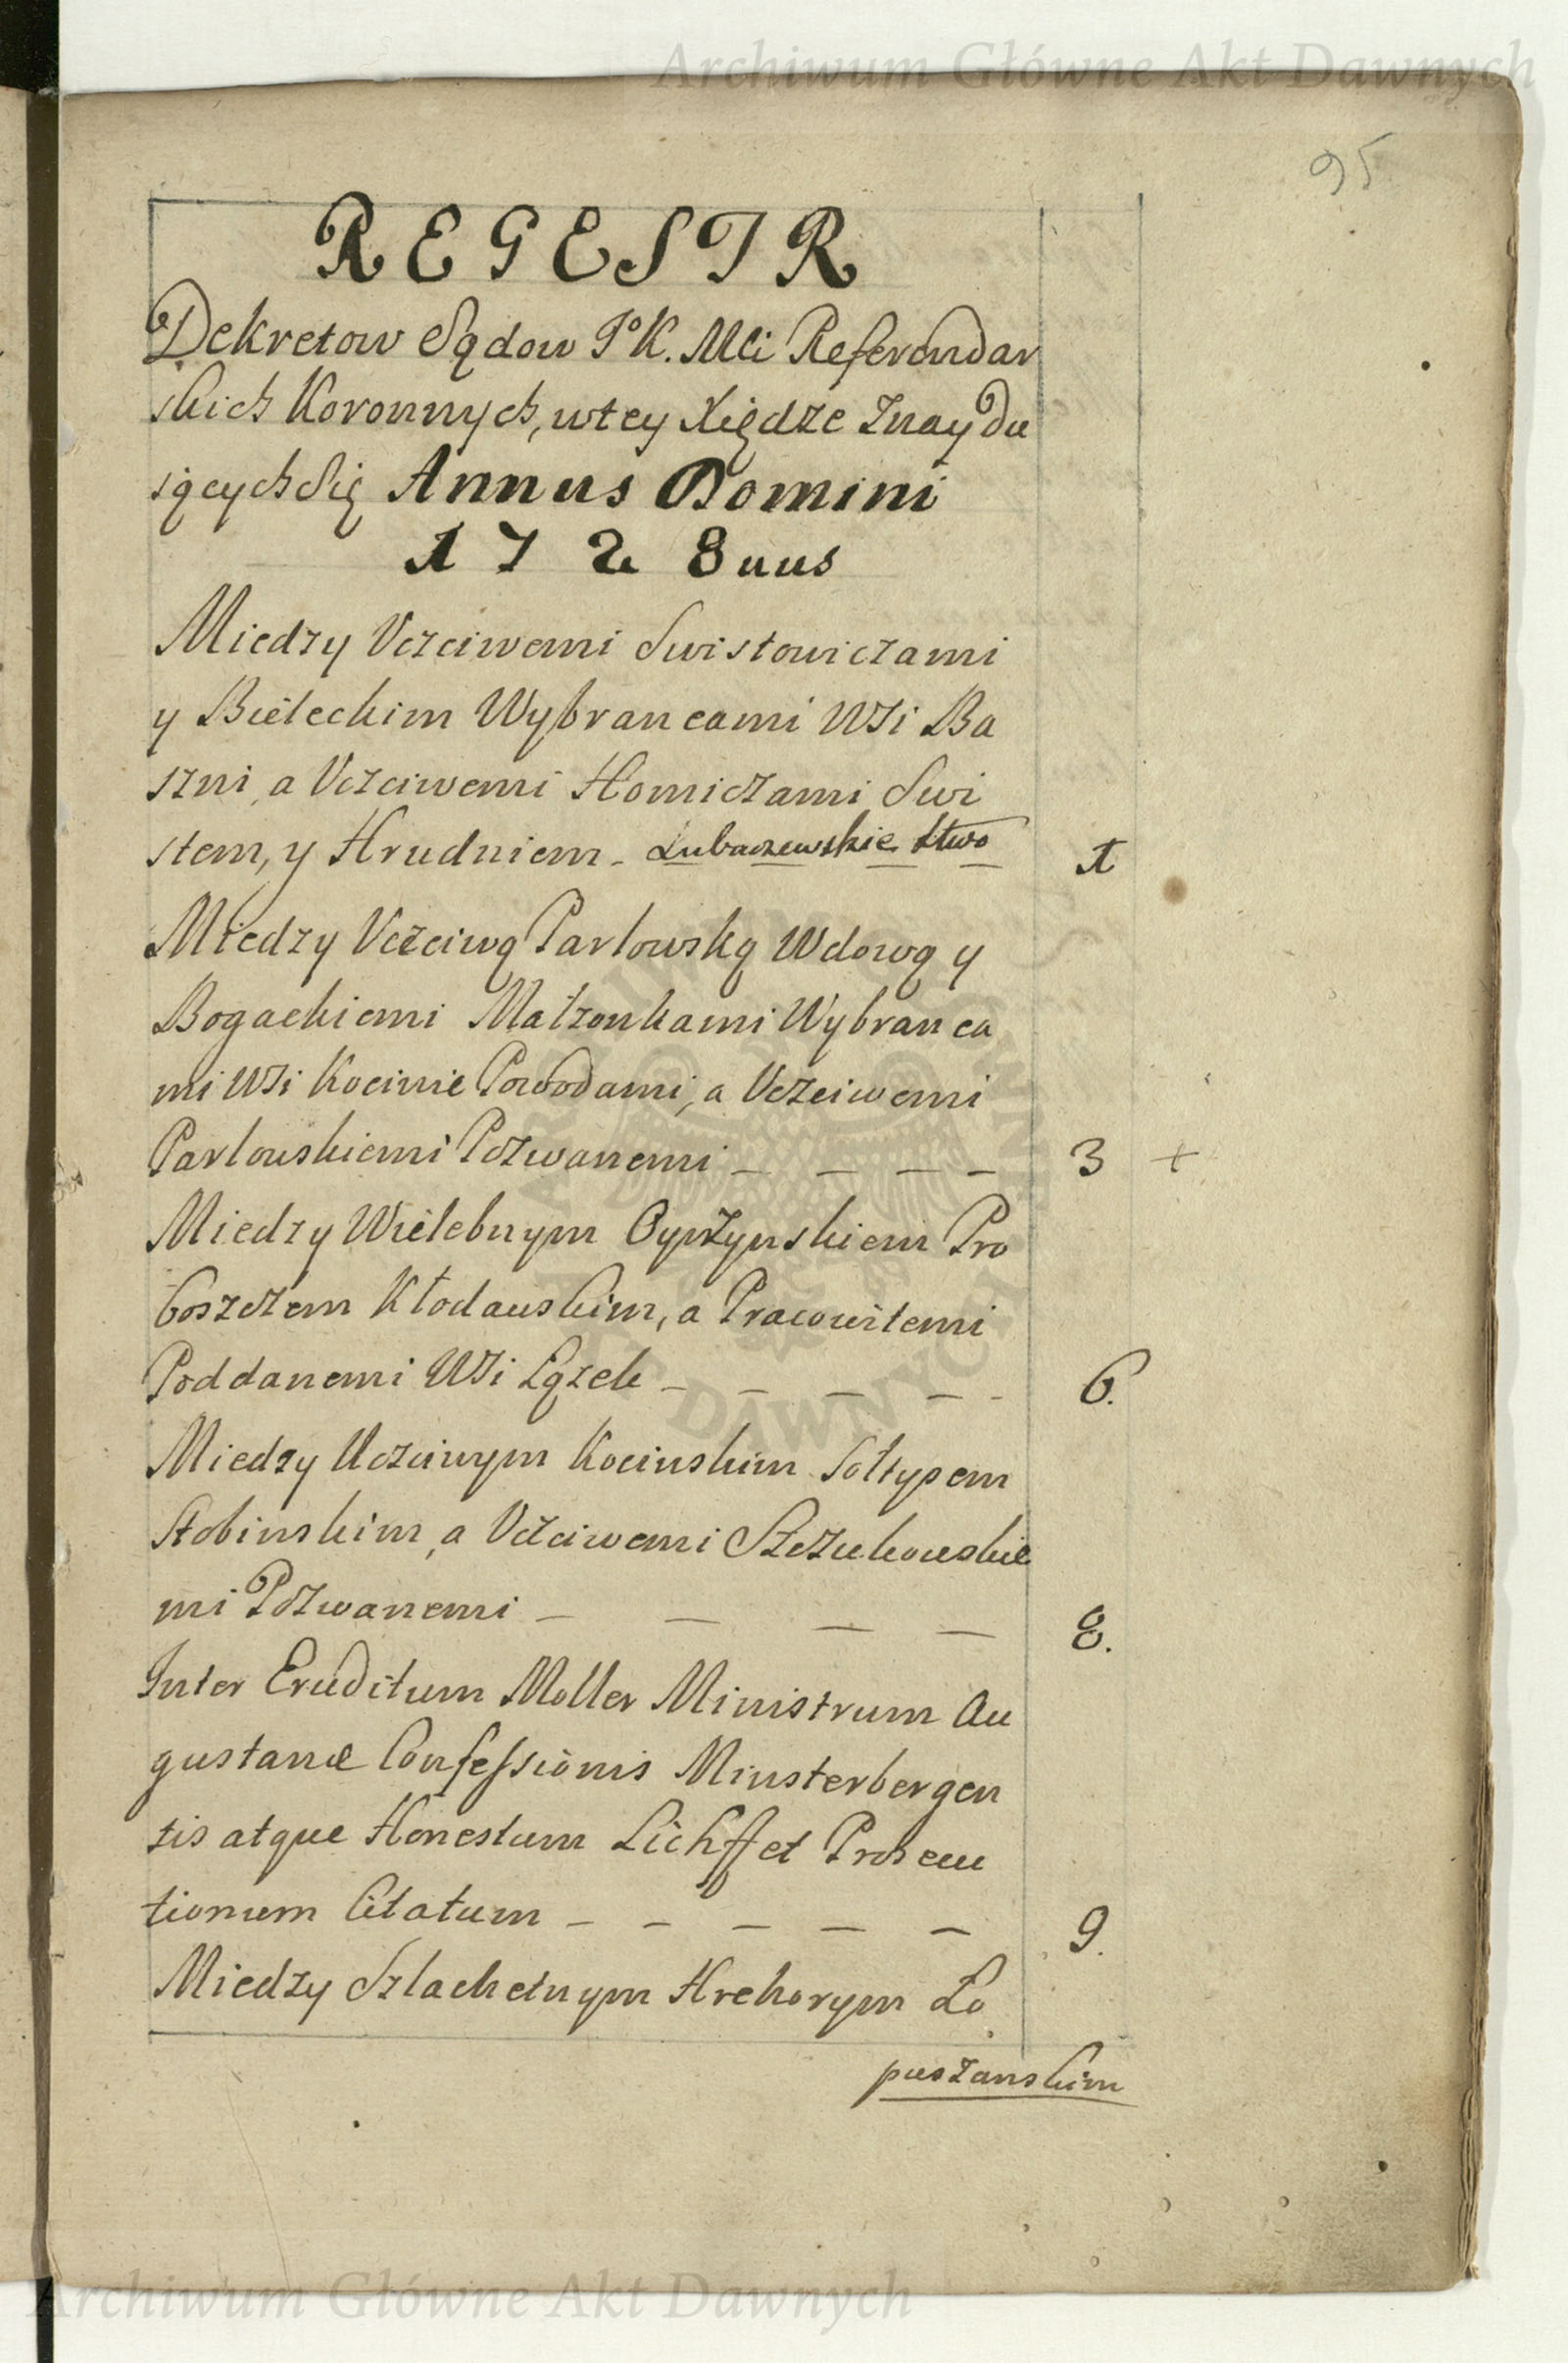 Archiwum Główne Akt Dawnych
95
REGESTR
Dekretow Sądow Jº K. Mci Referendar
skich Koronnych, w tey Xiędze Znaydu
iących Się Annus Domini
1728uus
Miedzy Vczciwemi Swistowiczami
y Bieleckim Wybrancami WSi Ba
szni, a Vczciwemi Homiczami Swi
stem, y Hrudniem - Lubaczewskie Stwo 1
Miedzy Vczciwą Parlowską Wdową y
Bogackiemi Małzonkami Wybranca
mi WSi Kocinie Powodami, a Vczciwemi
Parlowskiemi Pozwanemi - - - - 3 +
Miedzy Wielebnym Pro
boszczem Kłodawskim, a Pracowitemi
Poddanemi WSi Łązek - - - - - 6.
Miedzy Uczciwym Kocinskim Sołtysem
Stobinskim, a Vczciwemi Szczukowskie
mi Pozwanemi - - - - 8.
Inter Eruditum Moller Ministrum Au
gustanæ Confessionis Minsterbergen
sis atque Honestum Lichfft et Prosecu
tionem Citatum - - - - - 9.
Miedzy Szlachetnym Hrehorym Ło
puszanskim
ARCHIWUM GŁÓWNE AKT DAWNYCH
Archiwum Główne Akt Dawnych